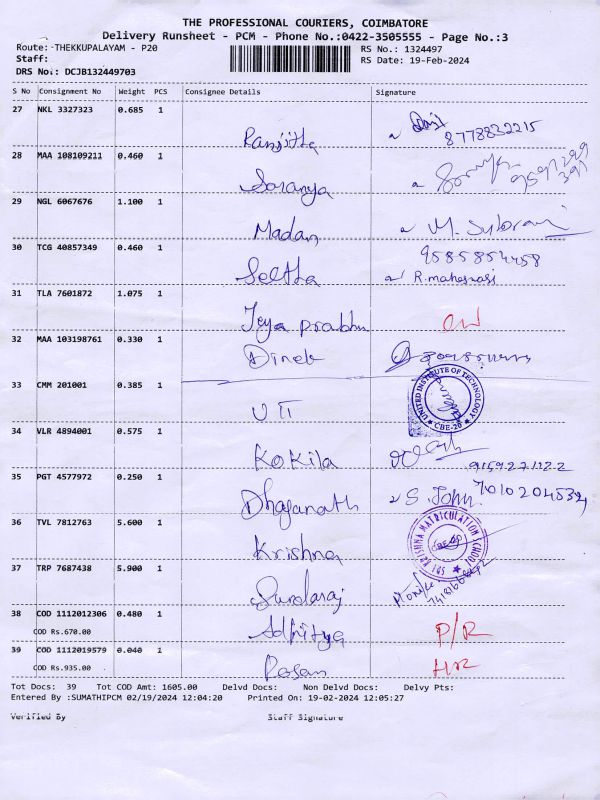 THE PROFESSIONAL COURIERS, COIMBATORE
Delivery Runsheet - PCM - Phone No.:0422-3505555 - Page No.:3
Route: -THEKKUPALAYAM - P20 RS No.: 1324497
Staff: RS Date: 19-Feb-2024
DRS No.: DCJB132449703
S No Consignment No Weight PCS Consignee Details Signature
27 NKL 3327323 0.685 1
Ranjitha 8778832215
28 MAA 108109211 0.460 1
Saranya
29 NGL 6067676 1.100 1
Madan M. Subrani
30 TCG 40857349 0.460 1 9585854458
Seetha R.maheswari
31 TLA 7601872 1.075 1
Jeya prabhu
32 MAA 103198761 0.330 1
Dinesh
33 CMM 201001 0.385 1
UIT UNITED INSTITUTE OF TECHNOLOGY ★ CBE-20 ★
34 VLR 4894001 0.575 1
Kokila 9159271122
35 PGT 4577972 0.250 1
S. John
36 TVL 7812763 5.600 1
Krishna KRISHNA MATRICULATION SCHOOL
37 TRP 7687438 5.900 1
38 COD 1112012306 0.480 1
COD Rs.670.00 Adhitya P/R
39 COD 1112019579 0.040 1
COD Rs.935.00 Rosan
Tot Docs: 39 Tot COD Amt: 1605.00 Delvd Docs: Non Delvd Docs: Delvy Pts:
Entered By :SUMATHIPCM 02/19/2024 12:04:20 Printed On: 19-02-2024 12:05:27
Verified By Staff Signature